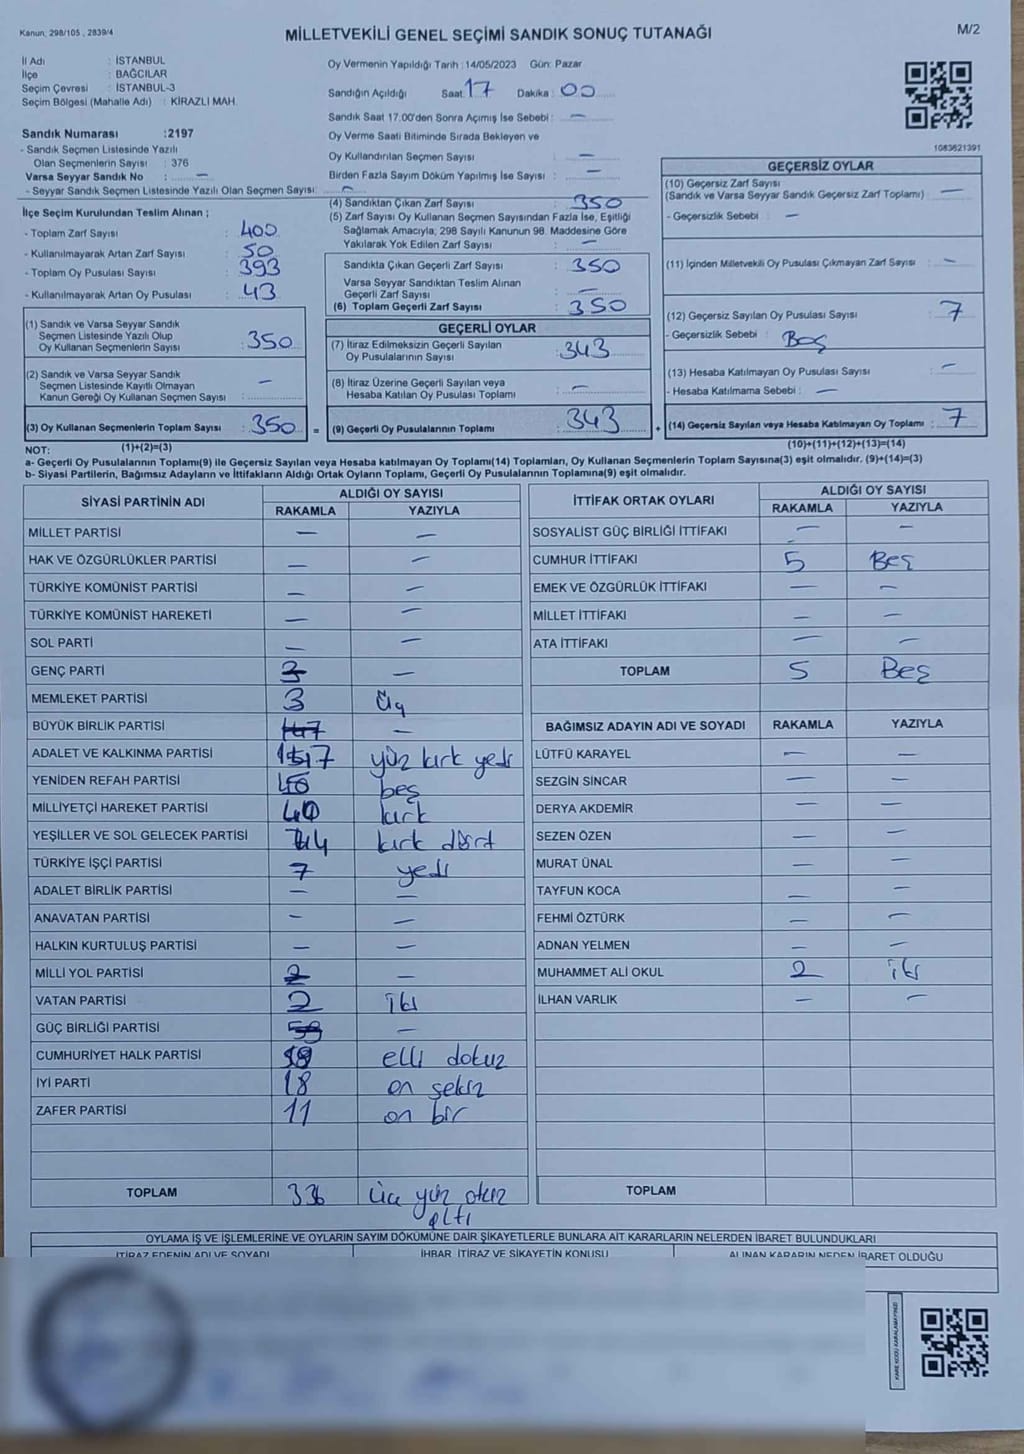 Kanun, 298/105 , 2839/4
MİLLETVEKİLİ GENEL SEÇİMİ SANDIK SONUÇ TUTANAĞI
M/2
İl Adı : İSTANBUL
İlçe : BAĞCILAR
Seçim Çevresi : İSTANBUL-3
Seçim Bölgesi (Mahalle Adı) : KİRAZLI MAH.
Oy Vermenin Yapıldığı Tarih :14/05/2023 Gün: Pazar
Sandığın Açıldığı Saat: 17 Dakika : 00
Sandık Saat 17.00'den Sonra Açımış İse Sebebi : —
Oy Verme Saati Bitiminde Sırada Bekleyen ve
Oy Kullandırılan Seçmen Sayısı : —
Birden Fazla Sayım Döküm Yapılmış İse Sayısı : —
Sandık Numarası :2197
- Sandık Seçmen Listesinde Yazılı
Olan Seçmenlerin Sayısı : 376
Varsa Seyyar Sandık No : —
- Seyyar Sandık Seçmen Listesinde Yazılı Olan Seçmen Sayısı: —
1083621391
İlçe Seçim Kurulundan Teslim Alınan ;
- Toplam Zarf Sayısı : 400
- Kullanılmayarak Artan Zarf Sayısı : 50
- Toplam Oy Pusulası Sayısı : 393
- Kullanılmayarak Artan Oy Pusulası : 43
(1) Sandık ve Varsa Seyyar Sandık
Seçmen Listesinde Yazılı Olup
Oy Kullanan Seçmenlerin Sayısı : 350
(2) Sandık ve Varsa Seyyar Sandık
Seçmen Listesinde Kayıtlı Olmayan
Kanun Gereği Oy Kullanan Seçmen Sayısı : —
(3) Oy Kullanan Seçmenlerin Toplam Sayısı : 350 =
(4) Sandıktan Çıkan Zarf Sayısı : 350
(5) Zarf Sayısı Oy Kullanan Seçmen Sayısından Fazla İse, Eşitliği
Sağlamak Amacıyla, 298 Sayılı Kanunun 98. Maddesine Göre
Yakılarak Yok Edilen Zarf Sayısı : —
Sandıkta Çıkan Geçerli Zarf Sayısı : 350
Varsa Seyyar Sandıktan Teslim Alınan
Geçerli Zarf Sayısı : —
(6) Toplam Geçerli Zarf Sayısı : 350
GEÇERLİ OYLAR
(7) İtiraz Edilmeksizin Geçerli Sayılan
Oy Pusulalarının Sayısı : 343
(8) İtiraz Üzerine Geçerli Sayılan veya
Hesaba Katılan Oy Pusulası Toplamı : —
(9) Geçerli Oy Pusulalarının Toplamı : 343 +
GEÇERSİZ OYLAR
(10) Geçersiz Zarf Sayısı
(Sandık ve Varsa Seyyar Sandık Geçersiz Zarf Toplamı) : —
- Geçersizlik Sebebi : —
(11) İçinden Milletvekili Oy Pusulası Çıkmayan Zarf Sayısı : —
(12) Geçersiz Sayılan Oy Pusulası Sayısı : 7
- Geçersizlik Sebebi : Boş
(13) Hesaba Katılmayan Oy Pusulası Sayısı : —
- Hesaba Katılmama Sebebi : —
(14) Geçersiz Sayılan veya Hesaba Katılmayan Oy Toplamı : 7
NOT: (1)+(2)=(3)
(10)+(11)+(12)+(13)=(14)
a- Geçerli Oy Pusulalarının Toplamı(9) ile Geçersiz Sayılan veya Hesaba katılmayan Oy Toplamı(14) Toplamları, Oy Kullanan Seçmenlerin Toplam Sayısına(3) eşit olmalıdır. (9)+(14)=(3)
b- Siyasi Partilerin, Bağımsız Adayların ve İttifakların Aldığı Ortak Oyların Toplamı, Geçerli Oy Pusulalarının Toplamına(9) eşit olmalıdır.
SİYASİ PARTİNİN ADI
ALDIĞI OY SAYISI
RAKAMLA YAZIYLA
MİLLET PARTİSİ — —
HAK VE ÖZGÜRLÜKLER PARTİSİ — —
TÜRKİYE KOMÜNİST PARTİSİ — —
TÜRKİYE KOMÜNİST HAREKETİ — —
SOL PARTİ — —
GENÇ PARTİ 3 —
MEMLEKET PARTİSİ 3 Üç
BÜYÜK BİRLİK PARTİSİ 147 —
ADALET VE KALKINMA PARTİSİ yüz kırk yedi
YENİDEN REFAH PARTİSİ beş
MİLLİYETÇİ HAREKET PARTİSİ 40 kırk
YEŞİLLER VE SOL GELECEK PARTİSİ 44 kırk dört
TÜRKİYE İŞÇİ PARTİSİ 7 yedi
ADALET BİRLİK PARTİSİ — —
ANAVATAN PARTİSİ — —
HALKIN KURTULUŞ PARTİSİ — —
MİLLİ YOL PARTİSİ 2 —
VATAN PARTİSİ 2 iki
GÜÇ BİRLİĞİ PARTİSİ 59 —
CUMHURİYET HALK PARTİSİ elli dokuz
İYİ PARTİ 18 on sekiz
ZAFER PARTİSİ 11 on bir
TOPLAM 336 üç yüz otuz
altı
İTTİFAK ORTAK OYLARI
ALDIĞI OY SAYISI
RAKAMLA YAZIYLA
SOSYALİST GÜÇ BİRLİĞİ İTTİFAKI — —
CUMHUR İTTİFAKI 5 Beş
EMEK VE ÖZGÜRLÜK İTTİFAKI — —
MİLLET İTTİFAKI — —
ATA İTTİFAKI — —
TOPLAM 5 Beş
BAĞIMSIZ ADAYIN ADI VE SOYADI RAKAMLA YAZIYLA
LÜTFÜ KARAYEL — —
SEZGİN SİNCAR — —
DERYA AKDEMİR — —
SEZEN ÖZEN — —
MURAT ÜNAL — —
TAYFUN KOCA — —
FEHMİ ÖZTÜRK — —
ADNAN YELMEN — —
MUHAMMET ALİ OKUL 2 iki
İLHAN VARLIK — —
TOPLAM
OYLAMA İŞ VE İŞLEMLERİNE VE OYLARIN SAYIM DÖKÜMÜNE DAİR ŞİKAYETLERLE BUNLARA AİT KARARLARIN NELERDEN İBARET BULUNDUKLARI
İTİRAZ EDENİN ADI VE SOYADI İHBAR, İTİRAZ VE ŞİKAYETİN KONUSU ALINAN KARARIN NEDEN İBARET OLDUĞU